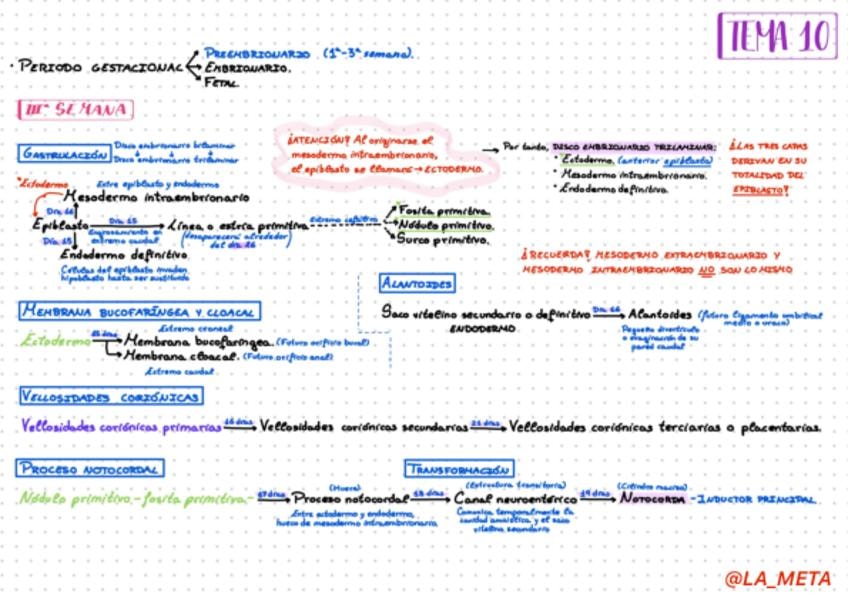 TEMA 10
· PERIODO GESTACIONAL
PREEMBRIONARIO (1ª-3ª semana).
EMBRIONARIO.
FETAL.
IIIª SEMANA
GASTRULACIÓN
Disco embrionario bilaminar
Disco embrionario trilaminar
¡ATENCIÓN! Al originarse el
mesodermo intraembrionario,
el epiblasto se llamará → ECTODERMO.
→ Por tanto, DISCO EMBRIONARIO TRILAMINAR:
· Ectodermo. (anterior epiblasto)
· Mesodermo intraembrionario.
· Endodermo definitivo.
¡LAS TRES CAPAS
DERIVAN EN SU
TOTALIDAD DEL
EPIBLASTO!
*Ectodermo
Entre epiblasto y endodermo
Mesodermo intraembrionario
Día 16
Epiblasto
Día 15
Engrosamiento en
extremo caudal
Línea o estría primitiva
(desaparecerá alrededor
del día 26)
extremo cefálico
Fosita primitiva.
Nódulo primitivo.
Surco primitivo.
Día 15
Endodermo definitivo
Células del epiblasto invaden
hipoblasto hasta ser sustituido
¡RECUERDA! MESODERMO EXTRAEMBRIONARIO Y
MESODERMO INTRAEMBRIONARIO NO SON LO MISMO
ALANTOIDES
Saco vitelino secundario o definitivo
ENDODERMO
Día 16
Alantoides (futuro ligamento umbilical
medio o uraco)
Pequeño divertículo
o evaginación de su
pared caudal
MEMBRANA BUCOFARÍNGEA Y CLOACAL
Extremo craneal
Ectodermo
15 días
Membrana bucofaríngea. (Futuro orificio bucal).
Membrana cloacal. (Futuro orificio anal)
Extremo caudal
VELLOSIDADES CORIÓNICAS
Vellosidades coriónicas primarias 16 días → Vellosidades coriónicas secundarias 21 días → Vellosidades coriónicas terciarias o placentarias.
PROCESO NOTOCORDAL
TRANSFORMACIÓN
(Hueco)
(Estructura transitoria)
(Cilindro macizo)
Nódulo primitivo - fosita primitiva - 17 días → Proceso notocordal 18 días → Canal neuroentérico 19 días → NOTOCORDA - INDUCTOR PRINCIPAL
Entre ectodermo y endodermo,
hueco de mesodermo intraembrionario
Comunica temporalmente la
cavidad amniótica y el saco
vitelino secundario
@LA_META